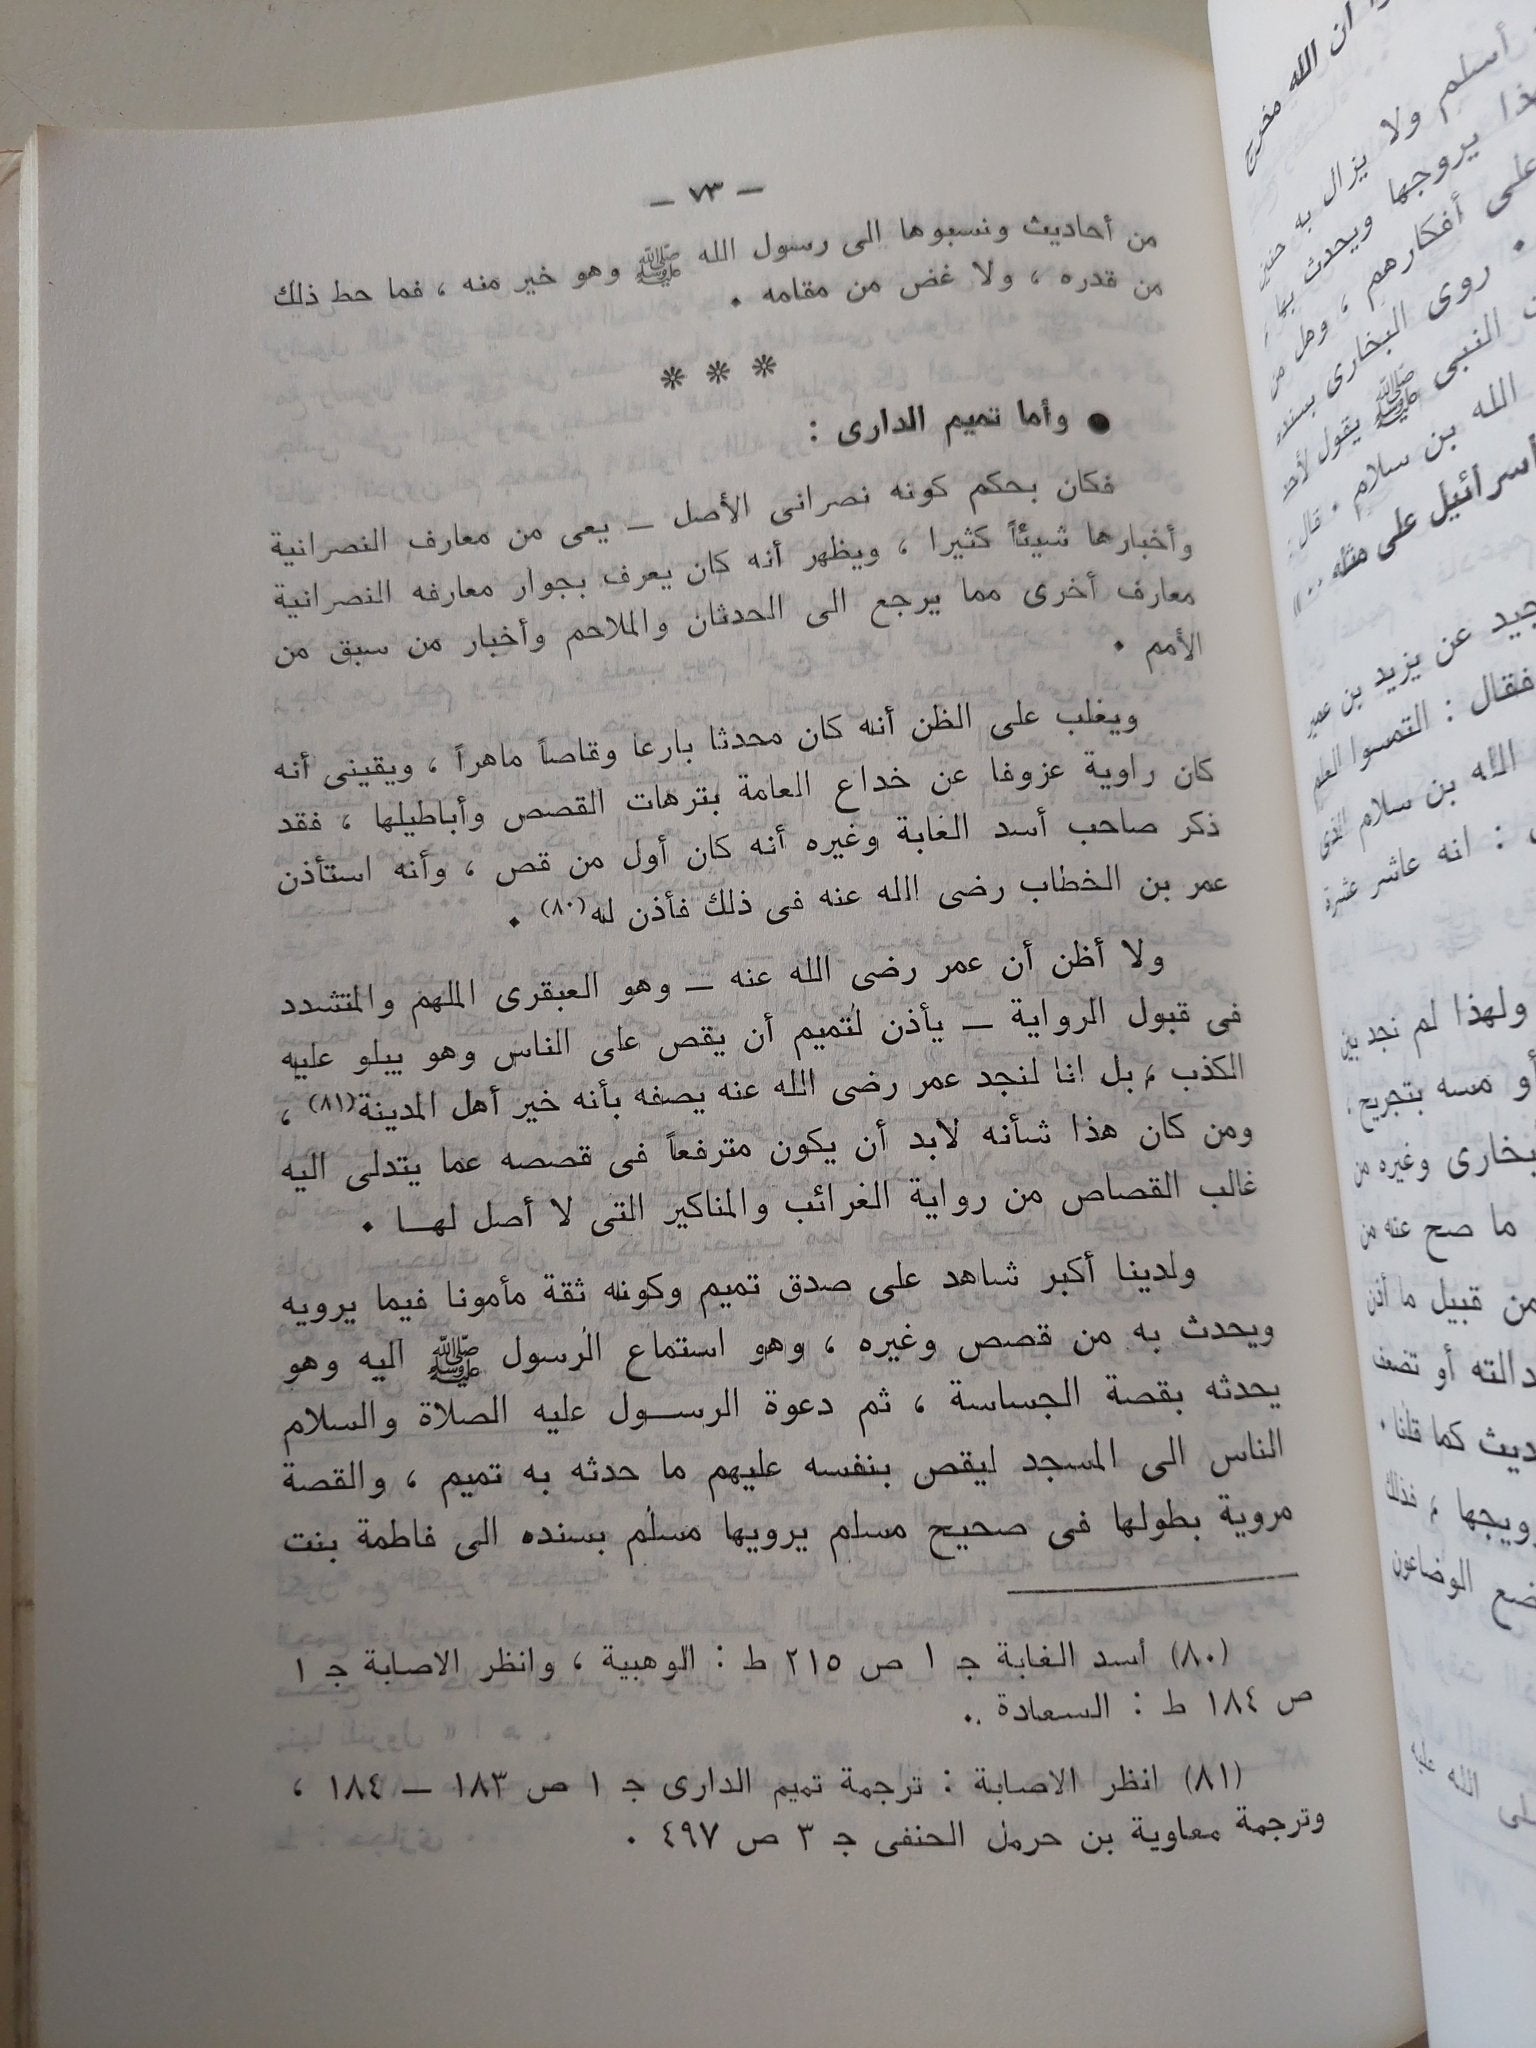 — ٧٣ —
من أحاديث ونسبوها الى رسول الله ﷺ وهو خير منه ، فما حط ذلك
من قدره ، ولا غض من مقامه .
❊ ❊ ❊
● وأما تميم الدارى :
فكان بحكم كونه نصرانى الأصل — يعى من معارف النصرانية
وأخبارها شيئاً كثيرا ، ويظهر أنه كان يعرف بجوار معارفه النصرانية
معارف أخرى مما يرجع الى الحدثان والملاحم وأخبار من سبق من
الأمم .
ويغلب على الظن أنه كان محدثا بارعا وقاصاً ماهراً ، ويقينى أنه
كان راوية عزوفا عن خداع العامة بترهات القصص وأباطيلها ، فقد
ذكر صاحب أسد الغابة وغيره أنه كان أول من قص ، وأنه استأذن
عمر بن الخطاب رضى الله عنه فى ذلك فأذن له(٨٠) .
ولا أظن أن عمر رضى الله عنه — وهو العبقرى الملهم والمتشدد
فى قبول الرواية — يأذن لتميم أن يقص على الناس وهو يبلو عليه
الكذب ، بل انا لنجد عمر رضى الله عنه يصفه بأنه خير أهل المدينة(٨١) ،
ومن كان هذا شأنه لابد أن يكون مترفعاً فى قصصه عما يتدلى اليه
غالب القصاص من رواية الغرائب والمناكير التى لا أصل لهــا .
ولدينا أكبر شاهد على صدق تميم وكونه ثقة مأمونا فيما يرويه
ويحدث به من قصص وغيره ، وهو استماع الرسول ﷺ اليه وهو
يحدثه بقصة الجساسة ، ثم دعوة الرســول عليه الصلاة والسلام
الناس الى المسجد ليقص بنفسه عليهم ما حدثه به تميم ، والقصة
مروية بطولها فى صحيح مسلم يرويها مسلم بسنده الى فاطمة بنت
(٨٠) أسد الغابة ج ١ ص ٢١٥ ط : الوهبية ، وانظر الاصابة ج ١
ص ١٨٤ ط : السعادة .
(٨١) انظر الاصابة : ترجمة تميم الدارى ج ١ ص ١٨٣ — ١٨٤ ،
وترجمة معاوية بن حرمل الحنفى ج ٣ ص ٤٩٧ .
ان الله مخرج
أسلم ولا يزال به حنين
يروجها ويحدث بها ،
على أفكارهم ، وهل من
. روى البخارى بسنده
النبى ﷺ يقول لأحد
الله بن سلام . قال :
اسرائيل على مثله .. ))
عن يزيد بن عمير
فقال : التمسوا العلم
الله بن سلام الذى
: انه عاشر عشرة
ولهذا لم نجد بين
أو مسه بتجريح ،
وغيره من
ما صح عنه من
من قبيل ما أذن
أو تضعف
كما قلنا .
، فذلك
الوضاعون